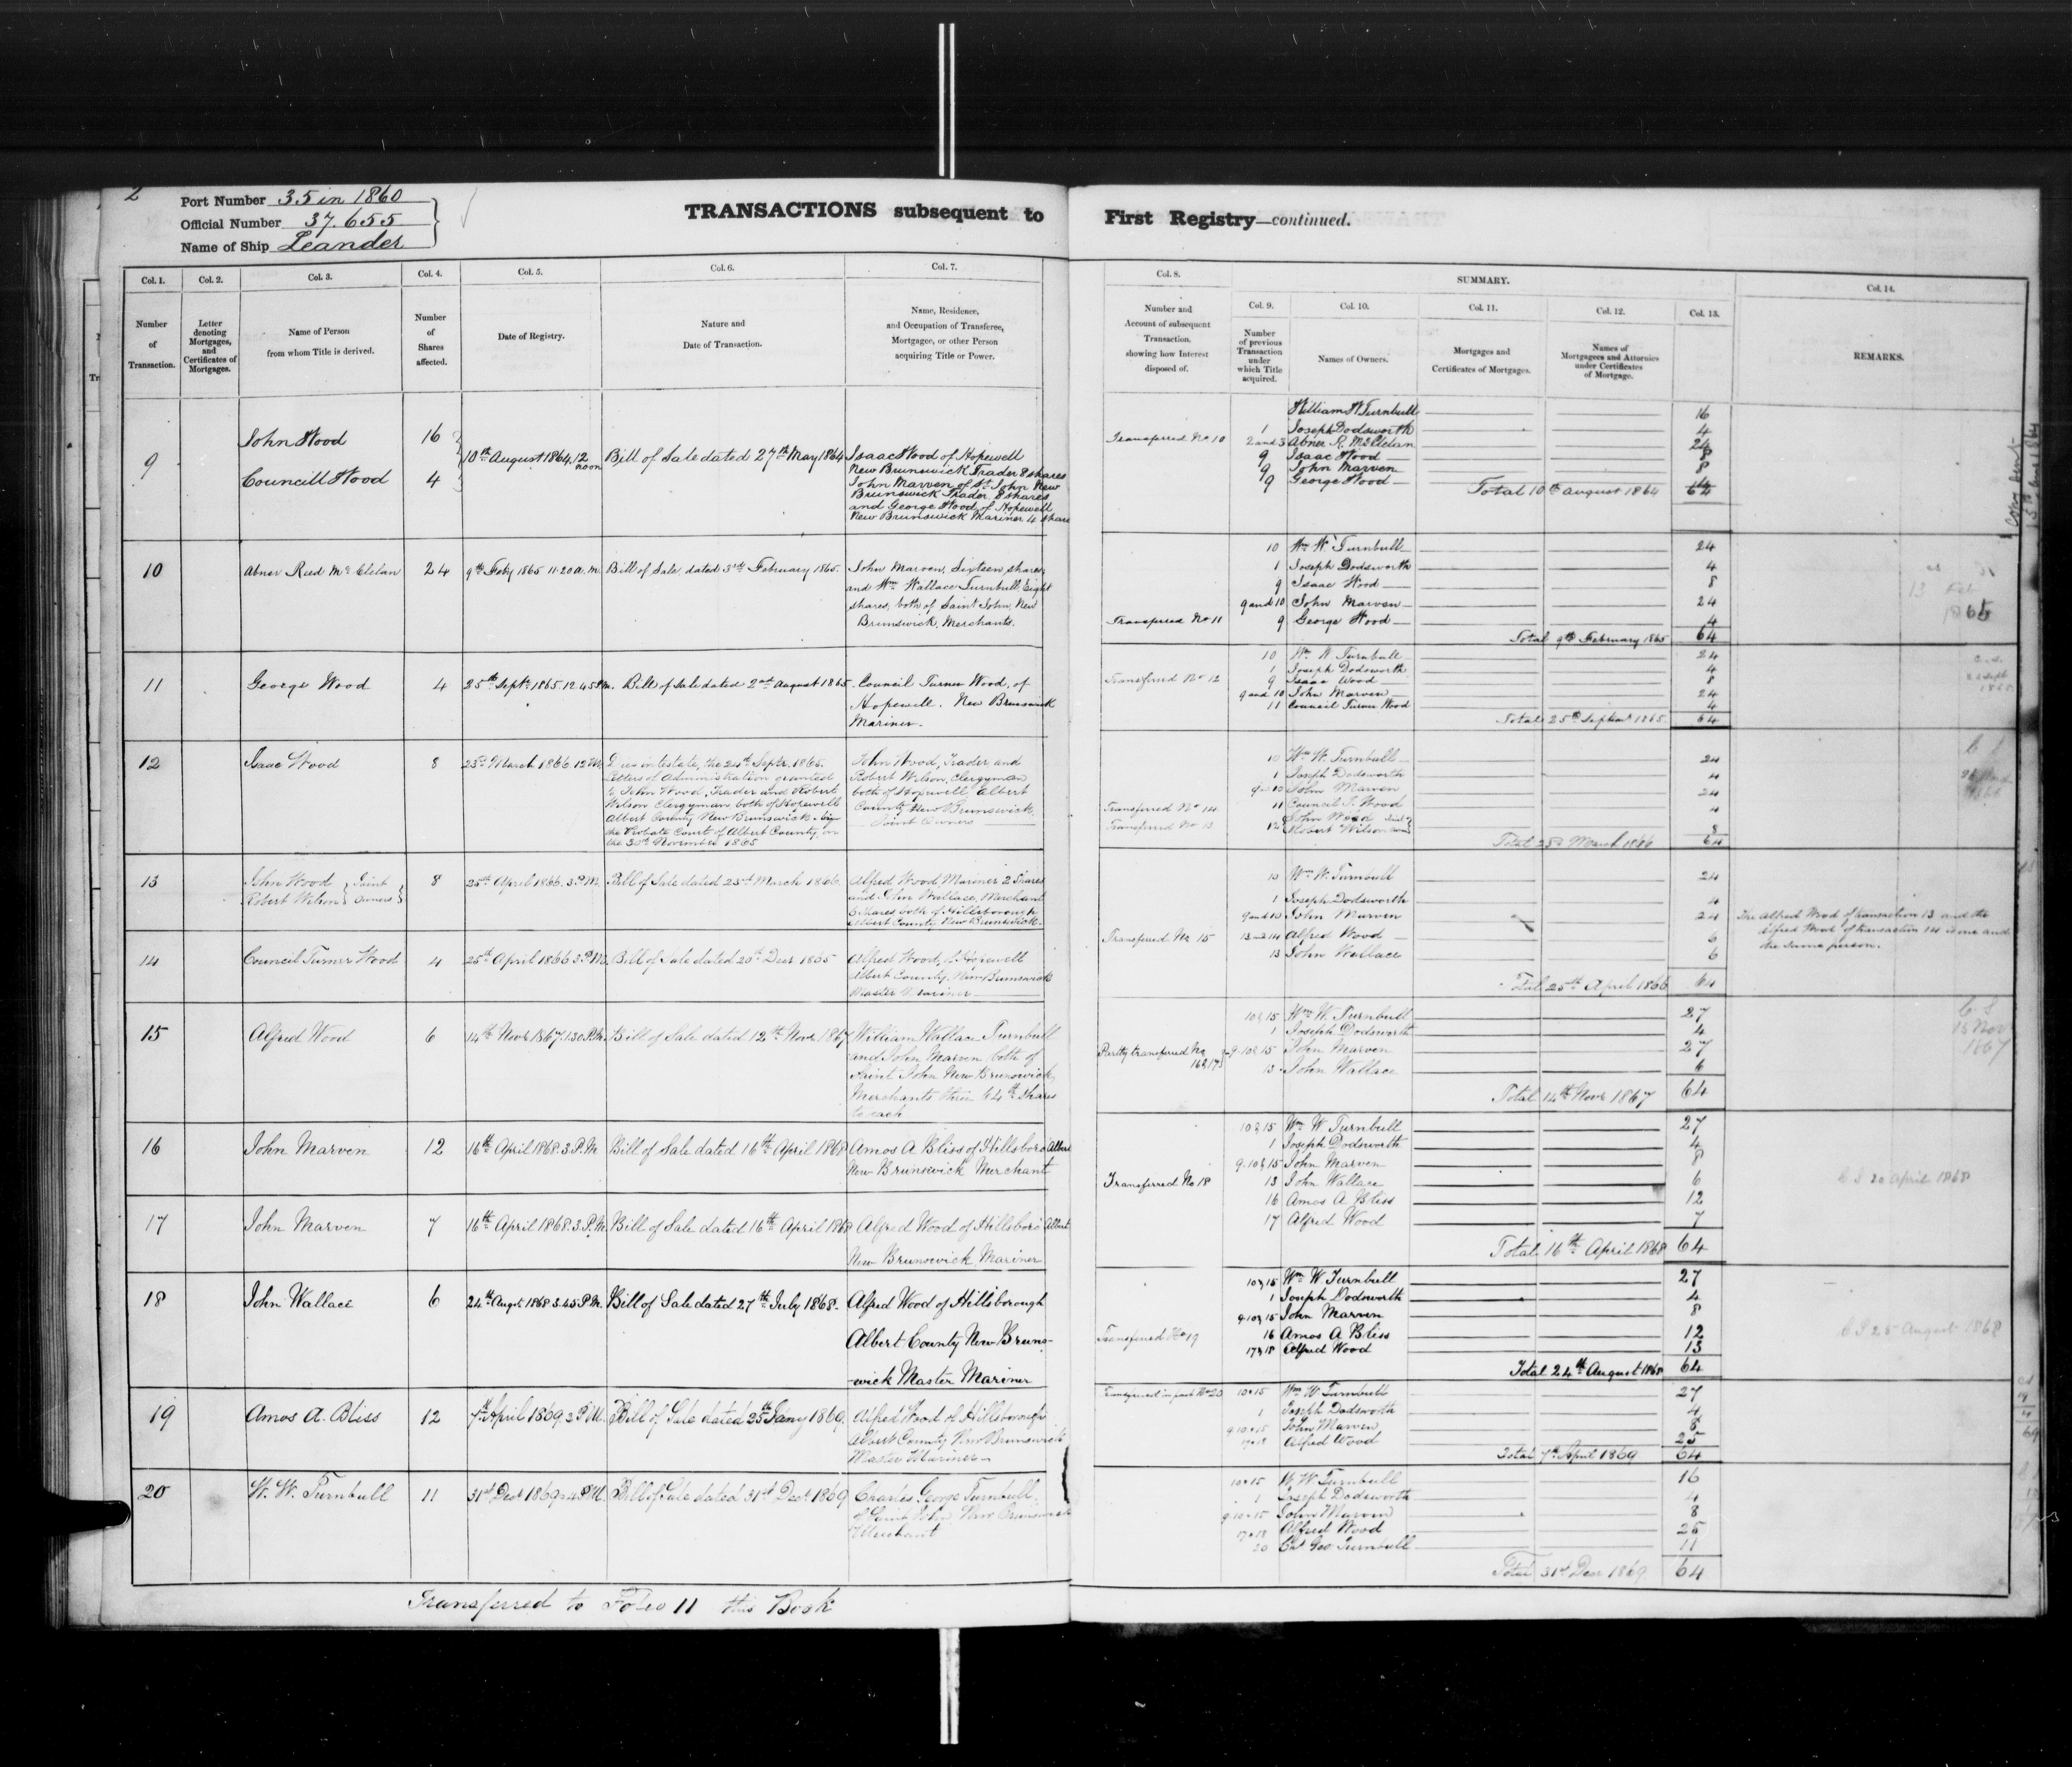 2
Port Number 35 in 1860
Official Number 37.655
Name of Ship Leander
TRANSACTIONS subsequent to
Col. 1.
Col. 2.
Col. 3.
Col. 4.
Col. 5.
Col. 6.
Col. 7.
Number of Transaction.
Letter denoting Mortgages, and Certificates of Mortgages.
Name of Person from whom Title is derived.
Number of Shares affected.
Date of Registry.
Nature and Date of Transaction.
Name, Residence, and Occupation of Transferee, Mortgagee, or other Person acquiring Title or Power.
9
John Wood 16
Councill Wood 4
10th August 1864, 12 noon
Bill of Sale dated 27th May 1864
Isaac Wood of Hopewell
New Brunswick Trader 8 shares
John Marven of St. John New
Brunswick Trader, 8 shares
and George Wood of Hopewell
New Brunswick Mariner 4 share
10
Abner Reed McClelan 24
9th Feby 1865 11.20 a.m.
Bill of Sale, dated 3rd February 1865.
John Marven, Sixteen shares,
and Wm Wallace Turnbull Eight
shares, both of Saint John, New
Brunswick, Merchants.
11
George Wood 4
25th Septr 1865 12.45 P.m.
Bill of Sale dated 2nd August 1865.
Council Turner Wood, of
Hopewell. New Brunswick
Mariner.
12
Isaac Wood 8
23rd March 1866 12 M.
Dies intestate, the 24th Septr. 1865.
Letters of Administration granted
to John Wood, Trader and Robert
Wilson Clergyman both of Hopewell
Albert County New Brunswick
the Probate Court of Albert County, on
the 30th November 1865
John Wood, Trader and
Robert Wilson, Clergyman
both of Hopewell Albert
County New Brunswick
Joint Owners
13
John Wood
Robert Wilson } Joint Owners } 8
25th April 1866. 3.P.M.
Bill of Sale dated 23rd March 1866.
Alfred Wood Mariner 2 Shares
and John Wallace, Merchant
6 Shares both of Hillsborough
Albert County New Brunswick.
14
Council Turner Wood 4
25th April 1866 3.P.M.
Bill of Sale dated 20th Decr 1865
Alfred Wood, of Hopewell
Albert County. New Brunswick
Master Mariner
15
Alfred Wood 6
14th Novr 1867. 1.30 P.M.
Bill of Sale dated 12th Novr 1867
William Wallace Turnbull
and John Marven both of
Saint John New Brunswick
Merchants three 64th shares
to each
16
John Marven 12
16th April 1868. 3.P.M.
Bill of Sale dated 16th April 1868
Amos A Bliss of Hillsboro Albert
New Brunswick Merchant
17
John Marven 7
16th April 1868. 3.P.M.
Bill of Sale dated 16th April 1868
Alfred Wood of Hillsboro Albert
New Brunswick Mariner
18
John Wallace 6
24th Augt 1868 3.45 P.M.
Bill of Sale dated 27th July 1868.
Alfred Wood of Hillsborough
Albert County New Bruns-
-wick Master Mariner
19
Amos A. Bliss 12
7th April 1869 3 P.M.
Bill of Sale dated 25th Jany 1869.
Alfred Wood of Hillsborough
Albert County New Brunswick
Master Mariner
20
W. W. Turnbull 11
31st Decr 1869 4 P.M.
Bill of Sale dated 31st Decr 1869
Charles George Turnbull
of Saint John New Brunswick
Merchant
Transferred to Folio 11 this Book
First Registry—continued.
Col. 8.
SUMMARY.
Col. 9.
Col. 10.
Col. 11.
Col. 12.
Col. 13.
Col. 14.
Number and Account of subsequent Transaction, showing how Interest disposed of.
Number of previous Transaction under which Title acquired.
Names of Owners.
Mortgages and Certificates of Mortgages.
Names of Mortgagees and Attornies under Certificates of Mortgage.
REMARKS.
William W Turnbull 16
1 Joseph Dodsworth 4
Transferred No 10 2 and 3 Abner R. McClelan 24
9 Isaac Wood 8
9 John Marven 8
9 George Wood
Total 10th August 1864 64
10 Wm W Turnbull 24
1 Joseph Dodsworth 4
9 Isaac Wood 8
9 and 10 John Marven 24
Transferred No 11 9 George Wood 4
Total 9th February 1865 64
13 Feb 1865
10 Wm W Turnbull 24
1 Joseph Dodsworth 4
Transferred No 12 9 Isaac Wood 8
9 and 10 John Marven 24
11 Council Turner Wood 4
Total 25th Septemr 1865. 64
10 Wm W. Turnbull 24
1 Joseph Dodsworth 4
9 and 10 John Marven 24
Transferred No 14 11 Council T. Wood 4
Transferred No 13 12 John Wood
Robert Wilson 8
Total 23d March 1866 64
10 Wm W. Turnbull 24
1 Joseph Dodsworth 4
9 and 10 John Marven 24
Transferred No 15 13 and 14 Alfred Wood 6
13 John Wallace 6
Total 25th April 1866 64
The Alfred Wood of transaction 13 and the
Alfred Wood of transaction 14 is one and
the same person.
10 & 15 Wm W. Turnbull 27
1 Joseph Dodsworth 4
Partly transferred No 16 & 17 9. 10 & 15 John Marven 27
13 John Wallace 6
Total 14th Novr 1867 64
C S
15 Nov
1867
10 & 15 Wm W Turnbull 27
1 Joseph Dodsworth 4
9. 10 & 15 John Marven 8
Transferred No 18 13 John Wallace 6
16 Amos A Bliss 12
17 Alfred Wood 7
Total 16th April 1868 64
C S 20 April 1868
10 & 15 Wm W Turnbull 27
1 Joseph Dodsworth 4
9. 10 & 15 John Marven 8
Transferred No 19 16 Amos A Bliss 12
17 & 18 Alfred Wood 13
Total 24th August 1868 64
C S 25 August 1868
Transferred in part No 20 10 & 15 Wm W Turnbull 27
1 Joseph Dodsworth 4
9. 10 & 15 John Marven 8
17 & 18 Alfred Wood 25
Total 7th April 1869 64
10 & 15 W W Turnbull 16
1 Joseph Dodsworth 4
9. 10 & 15 John Marven 8
17 & 18 Alfred Wood 25
20 Chs Geo Turnbull 11
Total 31st Decr 1869 64